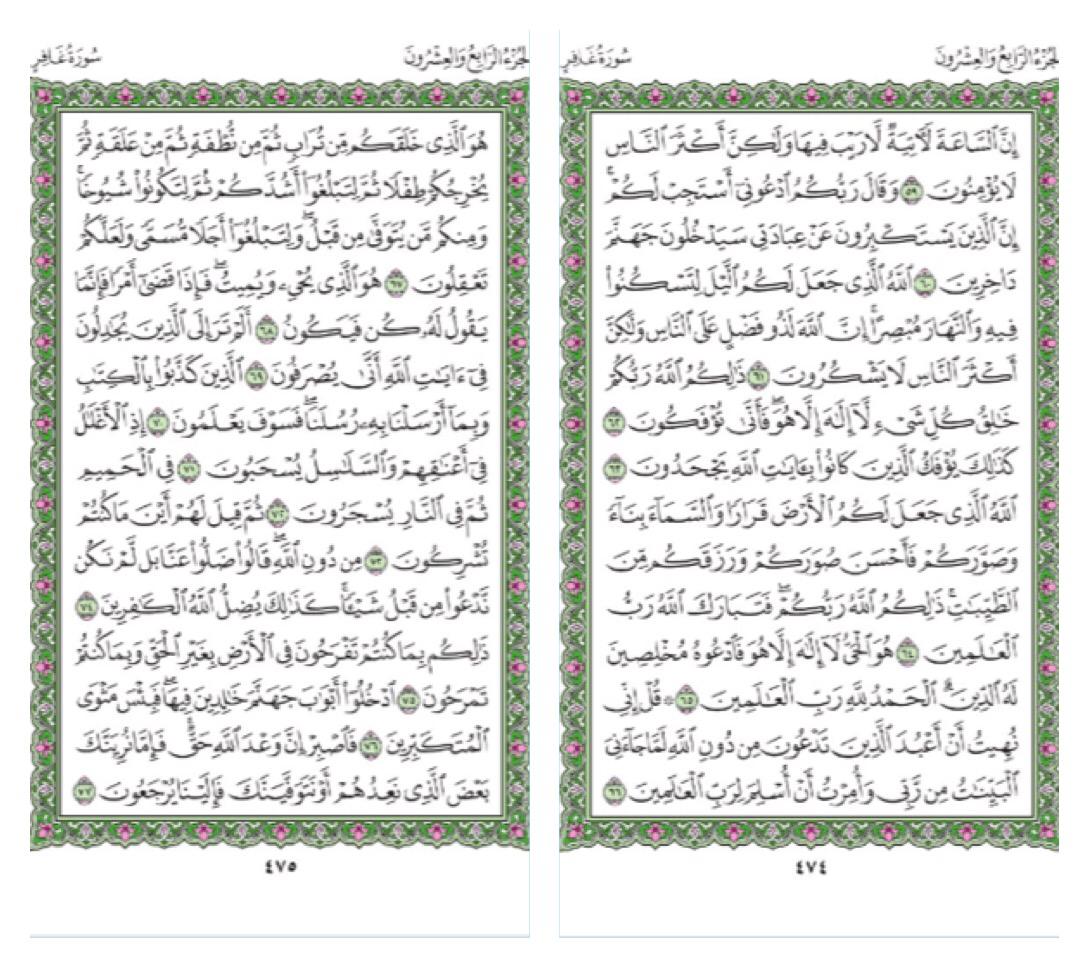 الجزء الرابع والعشرون
سورة غافر
إِنَّ ٱلسَّاعَةَ لَـَٔاتِيَةٌ لَّا رَيْبَ فِيهَا وَلَٰكِنَّ أَكْثَرَ ٱلنَّاسِ
لَا يُؤْمِنُونَ ٥٩ وَقَالَ رَبُّكُمُ ٱدْعُونِىٓ أَسْتَجِبْ لَكُمْ ۚ
إِنَّ ٱلَّذِينَ يَسْتَكْبِرُونَ عَنْ عِبَادَتِى سَيَدْخُلُونَ جَهَنَّمَ
دَاخِرِينَ ٦٠ ٱللَّهُ ٱلَّذِى جَعَلَ لَكُمُ ٱلَّيْلَ لِتَسْكُنُوا۟
فِيهِ وَٱلنَّهَارَ مُبْصِرًا ۚ إِنَّ ٱللَّهَ لَذُو فَضْلٍ عَلَى ٱلنَّاسِ وَلَٰكِنَّ
أَكْثَرَ ٱلنَّاسِ لَا يَشْكُرُونَ ٦١ ذَٰلِكُمُ ٱللَّهُ رَبُّكُمْ
خَٰلِقُ كُلِّ شَىْءٍ لَّآ إِلَٰهَ إِلَّا هُوَ ۖ فَأَنَّىٰ تُؤْفَكُونَ ٦٢
كَذَٰلِكَ يُؤْفَكُ ٱلَّذِينَ كَانُوا۟ بِـَٔايَٰتِ ٱللَّهِ يَجْحَدُونَ ٦٣
ٱللَّهُ ٱلَّذِى جَعَلَ لَكُمُ ٱلْأَرْضَ قَرَارًا وَٱلسَّمَآءَ بِنَآءً
وَصَوَّرَكُمْ فَأَحْسَنَ صُوَرَكُمْ وَرَزَقَكُم مِّنَ
ٱلطَّيِّبَٰتِ ۚ ذَٰلِكُمُ ٱللَّهُ رَبُّكُمْ ۖ فَتَبَارَكَ ٱللَّهُ رَبُّ
ٱلْعَٰلَمِينَ ٦٤ هُوَ ٱلْحَىُّ لَآ إِلَٰهَ إِلَّا هُوَ فَٱدْعُوهُ مُخْلِصِينَ
لَهُ ٱلدِّينَ ۗ ٱلْحَمْدُ لِلَّهِ رَبِّ ٱلْعَٰلَمِينَ ٦٥ ۞ قُلْ إِنِّى
نُهِيتُ أَنْ أَعْبُدَ ٱلَّذِينَ تَدْعُونَ مِن دُونِ ٱللَّهِ لَمَّا جَآءَنِىَ
ٱلْبَيِّنَٰتُ مِن رَّبِّى وَأُمِرْتُ أَنْ أُسْلِمَ لِرَبِّ ٱلْعَٰلَمِينَ ٦٦
٤٧٤
الجزء الرابع والعشرون
سورة غافر
هُوَ ٱلَّذِى خَلَقَكُم مِّن تُرَابٍ ثُمَّ مِن نُّطْفَةٍ ثُمَّ مِنْ عَلَقَةٍ ثُمَّ
يُخْرِجُكُمْ طِفْلًا ثُمَّ لِتَبْلُغُوٓا۟ أَشُدَّكُمْ ثُمَّ لِتَكُونُوا۟ شُيُوخًا ۚ
وَمِنكُم مَّن يُتَوَفَّىٰ مِن قَبْلُ ۖ وَلِتَبْلُغُوٓا۟ أَجَلًا مُّسَمًّى وَلَعَلَّكُمْ
تَعْقِلُونَ ٦٧ هُوَ ٱلَّذِى يُحْىِۦ وَيُمِيتُ ۖ فَإِذَا قَضَىٰٓ أَمْرًا فَإِنَّمَا
يَقُولُ لَهُۥ كُن فَيَكُونُ ٦٨ أَلَمْ تَرَ إِلَى ٱلَّذِينَ يُجَٰدِلُونَ
فِىٓ ءَايَٰتِ ٱللَّهِ أَنَّىٰ يُصْرَفُونَ ٦٩ ٱلَّذِينَ كَذَّبُوا۟ بِٱلْكِتَٰبِ
وَبِمَآ أَرْسَلْنَا بِهِۦ رُسُلَنَا ۖ فَسَوْفَ يَعْلَمُونَ ٧٠ إِذِ ٱلْأَغْلَٰلُ
فِىٓ أَعْنَٰقِهِمْ وَٱلسَّلَٰسِلُ يُسْحَبُونَ ٧١ فِى ٱلْحَمِيمِ
ثُمَّ فِى ٱلنَّارِ يُسْجَرُونَ ٧٢ ثُمَّ قِيلَ لَهُمْ أَيْنَ مَا كُنتُمْ
تُشْرِكُونَ ٧٣ مِن دُونِ ٱللَّهِ ۖ قَالُوا۟ ضَلُّوا۟ عَنَّا بَل لَّمْ نَكُن
نَّدْعُوا۟ مِن قَبْلُ شَيْـًٔا ۚ كَذَٰلِكَ يُضِلُّ ٱللَّهُ ٱلْكَٰفِرِينَ ٧٤
ذَٰلِكُم بِمَا كُنتُمْ تَفْرَحُونَ فِى ٱلْأَرْضِ بِغَيْرِ ٱلْحَقِّ وَبِمَا كُنتُمْ
تَمْرَحُونَ ٧٥ ٱدْخُلُوٓا۟ أَبْوَٰبَ جَهَنَّمَ خَٰلِدِينَ فِيهَا ۖ فَبِئْسَ مَثْوَى
ٱلْمُتَكَبِّرِينَ ٧٦ فَٱصْبِرْ إِنَّ وَعْدَ ٱللَّهِ حَقٌّ ۚ فَإِمَّا نُرِيَنَّكَ
بَعْضَ ٱلَّذِى نَعِدُهُمْ أَوْ نَتَوَفَّيَنَّكَ فَإِلَيْنَا يُرْجَعُونَ ٧٧
٤٧٥